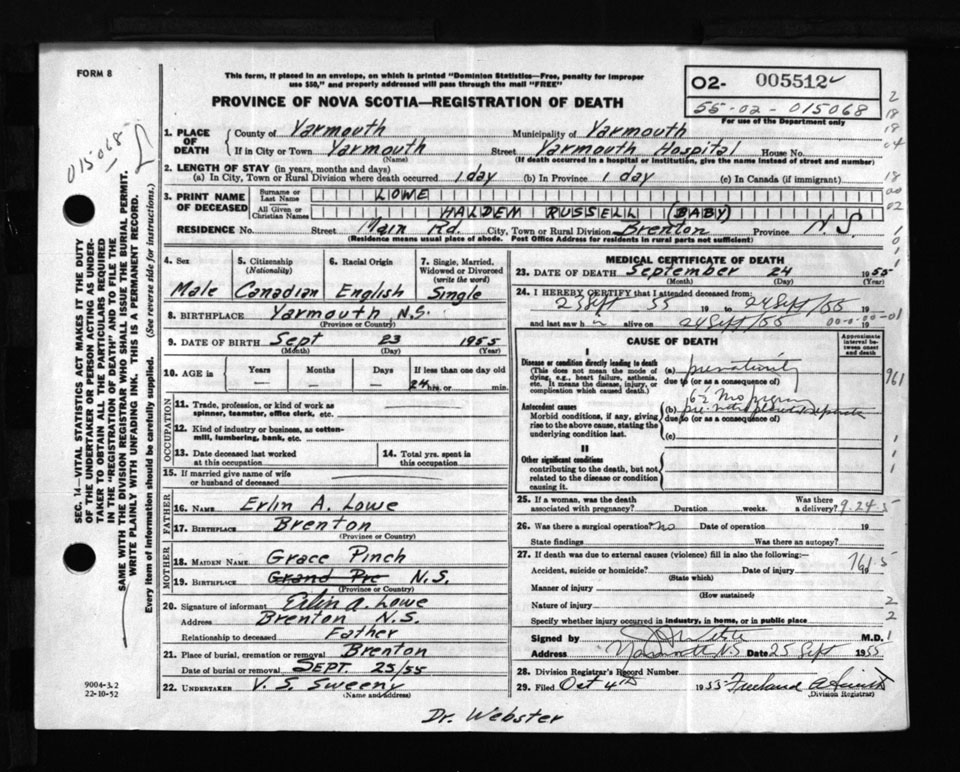 FORM 8
This form, if placed in an envelope, on which is printed "Dominion Statistics—Free, penalty for improper
use $50," and properly addressed will pass through the mail "FREE"
O2- 005512
55-02-015068
For use of the Department only
PROVINCE OF NOVA SCOTIA—REGISTRATION OF DEATH
015068
SEC. 14—VITAL STATISTICS ACT MAKES IT THE DUTY
OF THE UNDERTAKER OR PERSON ACTING AS UNDER-
TAKER TO OBTAIN ALL THE PARTICULARS REQUIRED
IN THE "REGISTRATION OF DEATH" AND TO FILE THE
SAME WITH THE DIVISION REGISTRAR WHO SHALL ISSUE THE BURIAL PERMIT.
WRITE PLAINLY WITH UNFADING INK. THIS IS A PERMANENT RECORD.
Every item of information should be carefully supplied. (See reverse side for instructions.)
1. PLACE OF DEATH County of Yarmouth Municipality of Yarmouth
If in City or Town Yarmouth Street Yarmouth Hospital House No.
(Name) (If death occurred in a hospital or institution, give the name instead of street and number)
2. LENGTH OF STAY (in years, months and days)
(a) In City, Town or Rural Division where death occurred 1 day (b) In Province 1 day (c) In Canada (if immigrant)
3. PRINT NAME OF DECEASED Surname or Last Name LOWE
All Given or Christian Names HALDEM RUSSELL (BABY)
RESIDENCE No. Street Main Rd. City, Town or Rural Division Brenton Province N.S.
(Residence means usual place of abode. Post Office Address for residents in rural parts not sufficient)
4. Sex 5. Citizenship (Nationality) 6. Racial Origin 7. Single, Married, Widowed or Divorced (write the word)
Male Canadian English Single
8. BIRTHPLACE Yarmouth N.S.
(Province or Country)
9. DATE OF BIRTH Sept 23 1955
(Month) (Day) (Year)
10. AGE in Years Months Days If less than one day old
24 hrs. or min.
OCCUPATION
11. Trade, profession, or kind of work as
spinner, teamster, office clerk, etc.
12. Kind of industry or business, as cotton-
mill, lumbering, bank, etc.
13. Date deceased last worked
at this occupation
14. Total yrs. spent in
this occupation
15. If married give name of wife
or husband of deceased
FATHER
16. NAME Erlin A. Lowe
17. BIRTHPLACE Brenton
(Province or Country)
MOTHER
18. MAIDEN NAME Grace Pinch
19. BIRTHPLACE Grand Pre N.S.
(Province or Country)
20. Signature of informant Erlin A. Lowe
Address Brenton N.S.
Relationship to deceased Father
21. Place of burial, cremation or removal Brenton
Date of burial or removal SEPT. 25/55
22. UNDERTAKER V. S. Sweeny
(Name and address)
9004-3.2
22-10-52
MEDICAL CERTIFICATE OF DEATH
23. DATE OF DEATH September 24 1955
(Month) (Day) (Year)
24. I HEREBY CERTIFY that I attended deceased from
23 Sept 55 19 to 24 Sept/55 19
and last saw h alive on 24 Sept/55 19
CAUSE OF DEATH
Approximate interval between onset and death
I
Disease or condition directly leading to death
(This does not mean the mode of
dying, e.g., heart failure, asthenia,
etc. It means the disease, injury, or
complication which caused death.)
(a)
due to (or as a consequence of)
961
Antecedent causes
Morbid conditions, if any, giving
rise to the above cause, stating the
underlying condition last.
6½ mo
(b)
due to (or as a consequence of)
(c)
II
Other significant conditions
contributing to the death, but not
related to the disease or condition
causing it.
25. If a woman, was the death
associated with pregnancy? Duration weeks. Was there
a delivery? 9.24.5
26. Was there a surgical operation? No Date of operation
State findings Was there an autopsy?
27. If death was due to external causes (violence) fill in also the following:—
Accident, suicide or homicide? Date of injury 761.5
(State which)
Manner of injury
(How sustained)
Nature of injury
Specify whether injury occurred in industry, in home, or in public place
Signed by M.D.
Address Yarmouth N.S. Date 25 Sept 1955
28. Division Registrar's Record Number
29. Filed Oct 4th 1955
(Division Registrar)
Dr. Webster